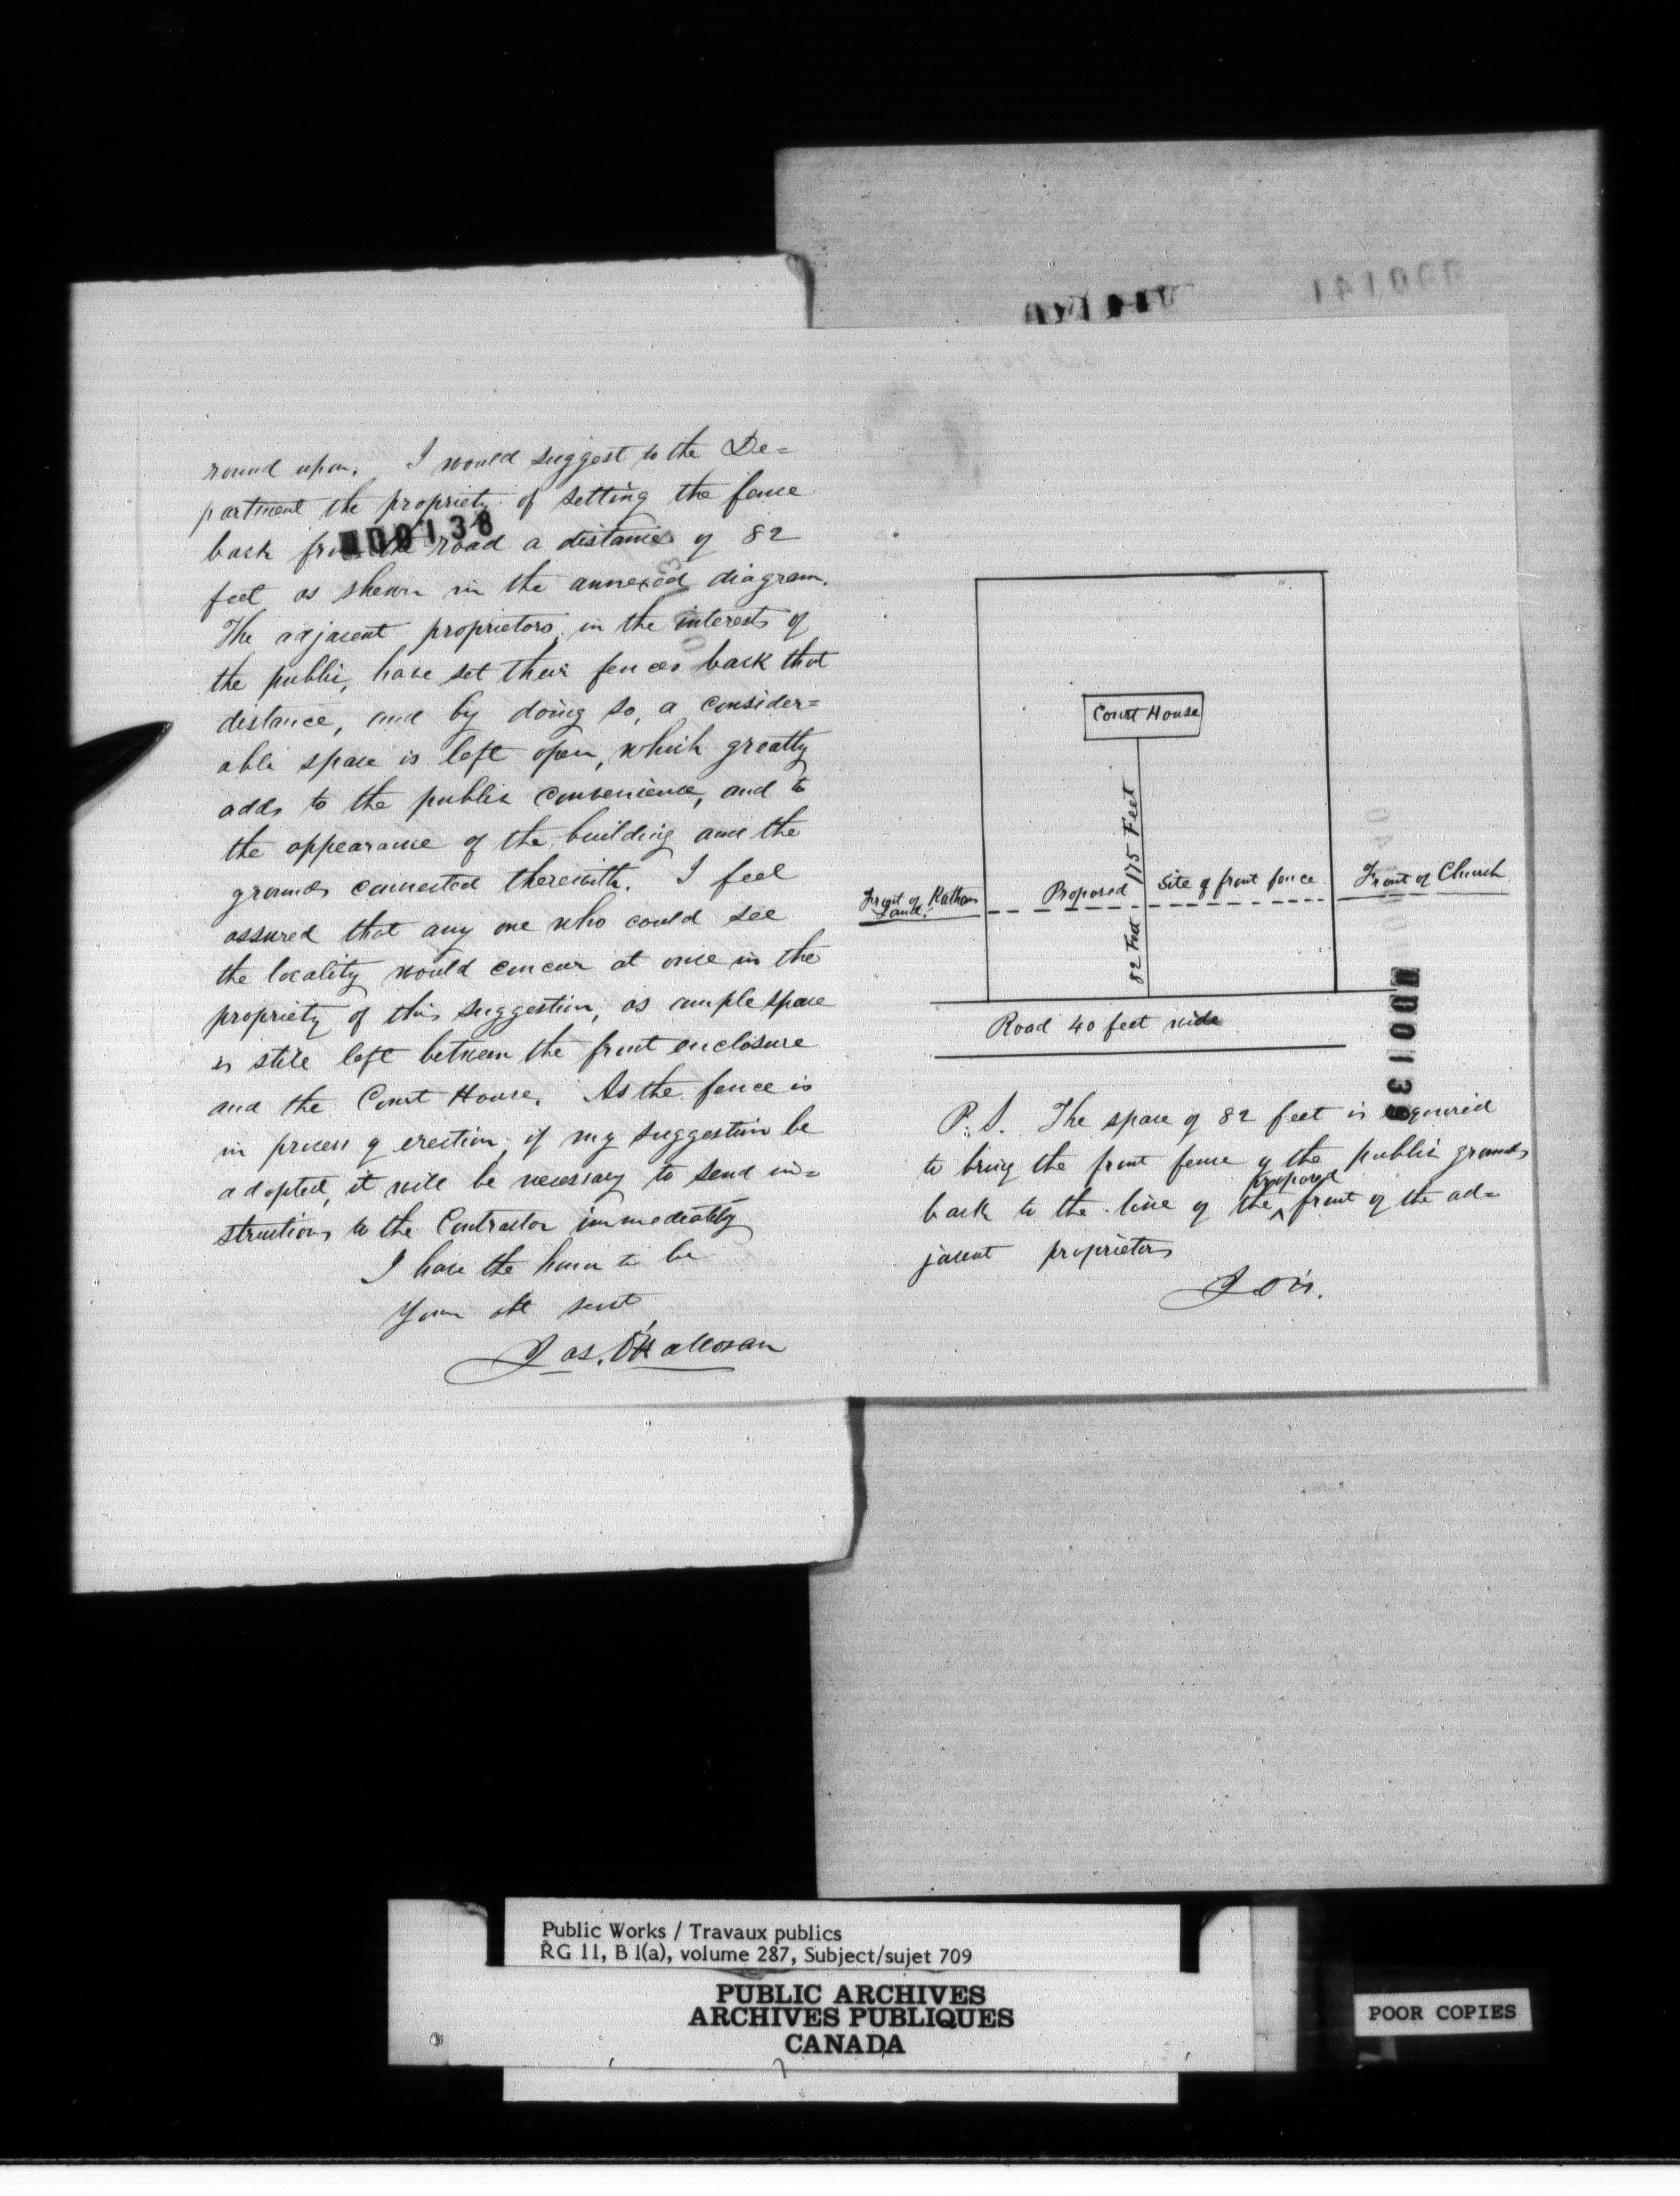 round upon. I would suggest to the De=
partment the propriety of setting the fence
back from the road a distance of 82
000138
feet as shewn in the annexed diagram.
The adjacent proprietors, in the interests of
the public, have set their fences back that
distance, and by doing so, a consider=
able space is left open, which greatly
adds to the public convenience, and to
the appearance of the building and the
grounds connected therewith. I feel
assured that any one who could see
the locality would concur at once in the
propriety of this suggestion, as ample space
is still left between the front enclosure
and the Court House. As the fence is
in process of erection, if my suggestion be
adopted, it will be necessary to send in=
structions to the Contractor immediately
I have the honor to be
Your obt servt
Jas. O'Halloran
000141
Court House
175 Feet
Front of
Land.
Proposed
Site of front fence
Front of Church
82 Feet
Road 40 feet wide
000139
P.S. The space of 82 feet is required
to bring the front fence of the public grounds
back to the line of the ^ proposed front of the ad=
jacent proprietors
J O'H.
Public Works / Travaux publics
RG 11, B 1(a), volume 287, Subject/sujet 709
PUBLIC ARCHIVES
ARCHIVES PUBLIQUES
CANADA
POOR COPIES